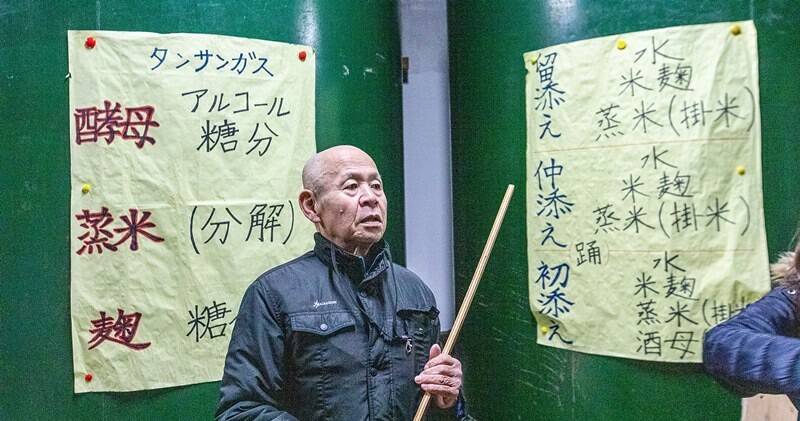 タンサンガス
アルコール
酵母 糖分
蒸米 (分解)
麹 糖
留添え
水
米麹
蒸米(掛米)
仲添え
水
米麹
蒸米(掛米)
踊
初添え
水
米麹
蒸米(掛
酒母